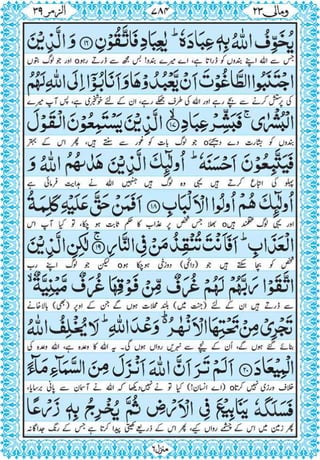 ومالی ۲۳ ۷۸۴ الزمر ۳۹
يُخَوِّفُ اللّٰهُ بِهٖ عِبَادَهٗ ؕ يٰعِبَادِ فَاتَّقُوْنِ ۱۶ وَالَّذِيْنَ
جس سے اللہ اپنے بندوں کو ڈراتا ہے، اے میرے بندو! بس مجھ سے ڈرتے رہو o اور جو لوگ بتوں
اجْتَنَبُوا الطَّاغُوْتَ اَنْ يَّعْبُدُوْهَا وَاَنَابُوْۤا اِلَى اللّٰهِ لَهُمُ
کی پرستش کرنے سے بچے رہے اور اللہ کی طرف جھکے رہے، ان کے لئے خوشخبری ہے، پس آپ میرے
الْبُشْرٰى ۚ فَبَشِّرْ عِبَادِ ۱۷ الَّذِيْنَ يَسْتَمِعُوْنَ الْقَوْلَ
بندوں کو بشارت دے دیجئے o جو لوگ بات کو غور سے سنتے ہیں، پھر اس کے بہتر
فَيَتَّبِعُوْنَ اَحْسَنَهٗ ؕ اُولٰٓئِكَ الَّذِيْنَ هَدٰىهُمُ اللّٰهُ وَ
پہلو کی اتباع کرتے ہیں، یہی وہ لوگ ہیں جنہیں اللہ نے ہدایت فرمائی ہے
اُولٰٓئِكَ هُمْ اُولُوا الْاَلْبَابِ ۱۸ اَفَمَنْ حَقَّ عَلَيْهِ كَلِمَةُ
اور یہی لوگ عقلمند ہیں o بھلا جس شخص پر عذاب کا حکم ثابت ہو چکا، تو کیا آپ اس
الْعَذَابِ ؕ اَفَاَنْتَ تُنْقِذُ مَنْ فِى النَّارِ ۱۹ لٰكِنِ الَّذِيْنَ
شخص کو بچا سکتے ہیں جو (دائمی) دوزخی ہو چکا ہو o لیکن جو لوگ اپنے رب
اتَّقَوْا رَبَّهُمْ لَهُمْ غُرَفٌ مِّنْ فَوْقِهَا غُرَفٌ مَّبْنِيَّةٌ ۙ
سے ڈرتے ہیں ان کے لئے (جنت میں) بلند محلات ہوں گے جن کے اوپر (بھی) بالاخانے
تَجْرِىْ مِنْ تَحْتِهَا الْاَنْهٰرُ ؕ وَعْدَ اللّٰهِ ؕ لَا يُخْلِفُ اللّٰهُ
بنائے گئے ہوں گے، اُن کے نیچے سے نہریں رواں ہوں گی۔ یہ اللہ کا وعدہ ہے، اللہ وعدہ کی
الْمِيْعَادَ ۲۰ اَلَمْ تَرَ اَنَّ اللّٰهَ اَنْزَلَ مِنَ السَّمَآءِ مَآءً
خلاف ورزی نہیں کرتا o (اے انسان!) کیا تو نے نہیں دیکھا کہ اللہ نے آسمان سے پانی برسایا،
فَسَلَكَهٗ يَنَابِيْعَ فِى الْاَرْضِ ثُمَّ يُخْرِجُ بِهٖ زَرْعًا
پھر زمین میں اس کے چشمے رواں کیے، پھر اس کے ذریعے کھیتی پیدا کرتا ہے جس کے رنگ جداگانہ
منزل ۶